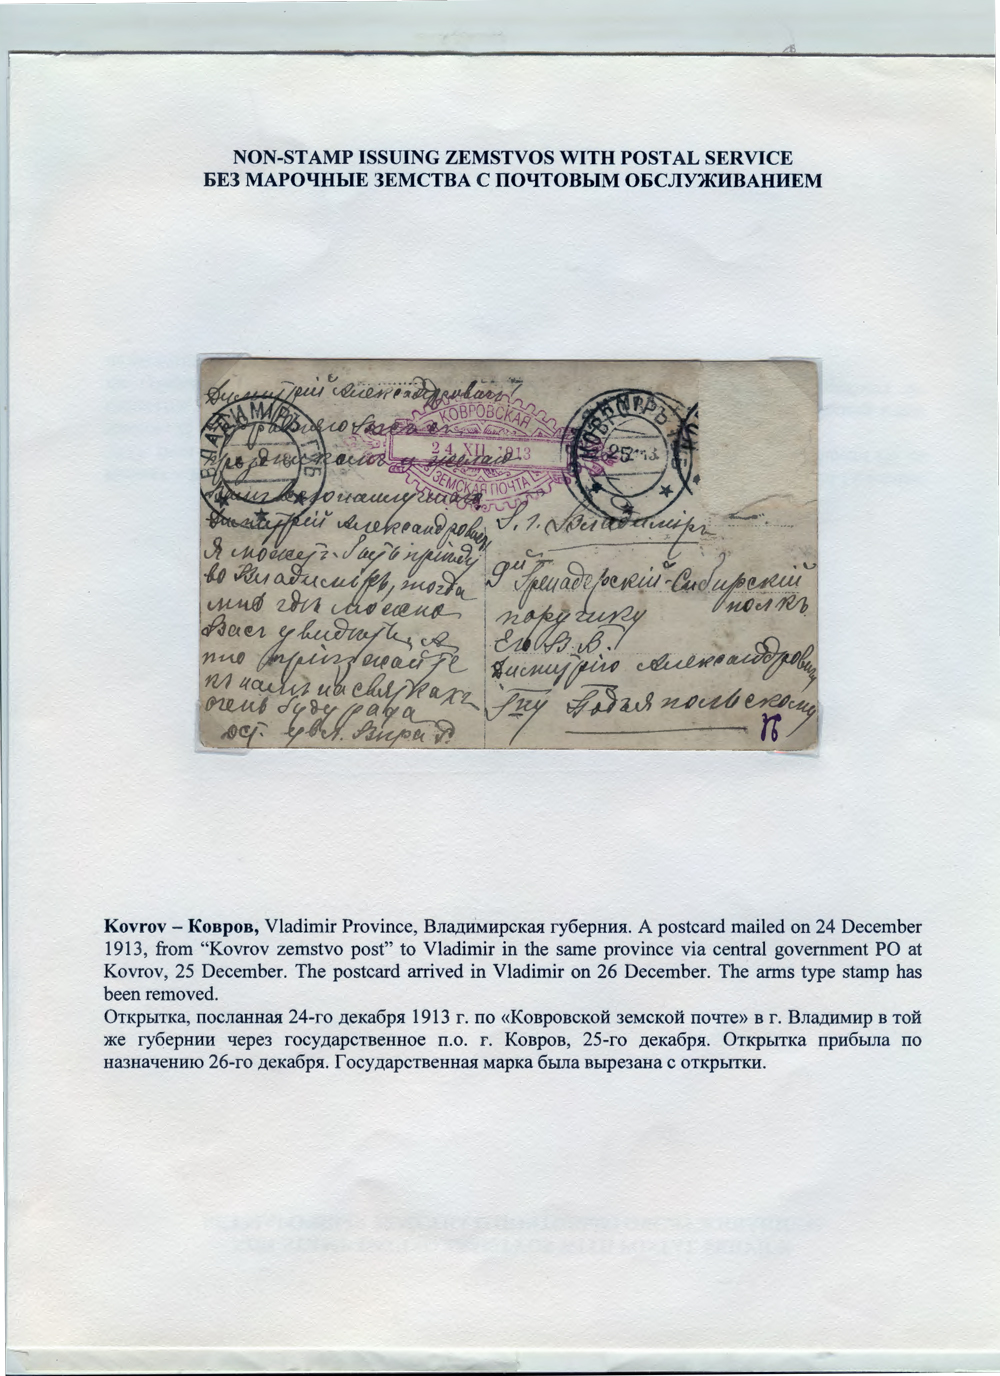 NON-STAMP ISSUING ZEMSTVOS WITH POSTAL SERVICE
БЕЗ МАРОЧНЫЕ ЗЕМСТВА С ПОЧТОВЫМ ОБСЛУЖИВАНИЕМ
Дмитрій Александровичъ!
праздникомъ и желаю
Дмитрій Александровичъ
Я можетъ быть пріѣду
во Владиміръ, тогда
мнѣ гдѣ можно
Васъ увидѣть, а
пріѣзжайте
къ намъ на святкахъ
очень буду рада
ост. ув. Вѣра
КОВРОВСКАЯ
24 XII 1913
ЗЕМСКАЯ ПОЧТА
ВЛАДИМІРЪ ГБ.
КОВРОВЪ
25 12 13
Г. Владиміръ
9й Гренадерскій-Сибирскій
полкъ
поручику
Его В. Б.
Дмитрію Александровичу
Гну Подъяпольскому
Kovrov – Ковров, Vladimir Province, Владимирская губерния. A postcard mailed on 24 December
1913, from “Kovrov zemstvo post” to Vladimir in the same province via central government PO at
Kovrov, 25 December. The postcard arrived in Vladimir on 26 December. The arms type stamp has
been removed.
Открытка, посланная 24-го декабря 1913 г. по «Ковровской земской почте» в г. Владимир в той
же губернии через государственное п.о. г. Ковров, 25-го декабря. Открытка прибыла по
назначению 26-го декабря. Государственная марка была вырезана с открытки.